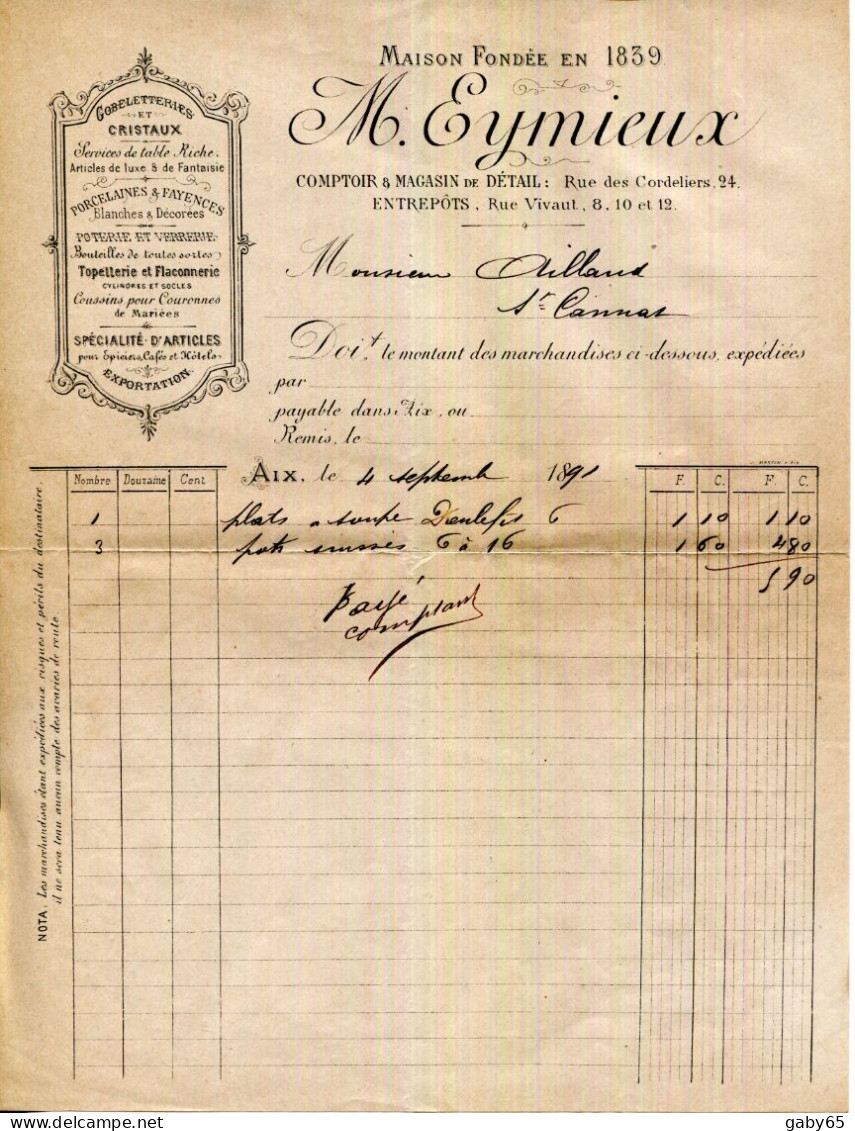 MAISON FONDÉE EN 1839
M. Eymieux
COMPTOIR & MAGASIN DE DÉTAIL: Rue des Cordeliers, 24.
ENTREPÔTS, Rue Vivaut, 8, 10 et 12.
GOBELETTERIES
ET
CRISTAUX
Services de table Riche.
Articles de luxe & de Fantaisie
PORCELAINES & FAYENCES
Blanches & Décorées
POTERIE ET VERRERIE
Bouteilles de toutes sortes
Topetterie et Flaconnerie
CYLINDRES ET SOCLES
Coussins pour Couronnes
de Mariées
SPÉCIALITÉ D'ARTICLES
pour Epiciers, Cafés et Hôtels
EXPORTATION
Monsieur Aillaud
St Cannat
Doit le montant des marchandises ci-dessous, expédiées
par
payable dans Aix, ou
Remis, le
AIX, le 4 septembre 1891
Nombre Douzame Cent F. C. F. C.
1 plats a soupe Dieulefit 6 1 10 1 10
3 pots suisses 6 à 16 1 60 4 80
5 90
Payé
comptant
NOTA. Les marchandises étant expédiées aux risques et périls du destinataire,
il ne sera tenu aucun compte des avaries de route
gaby65